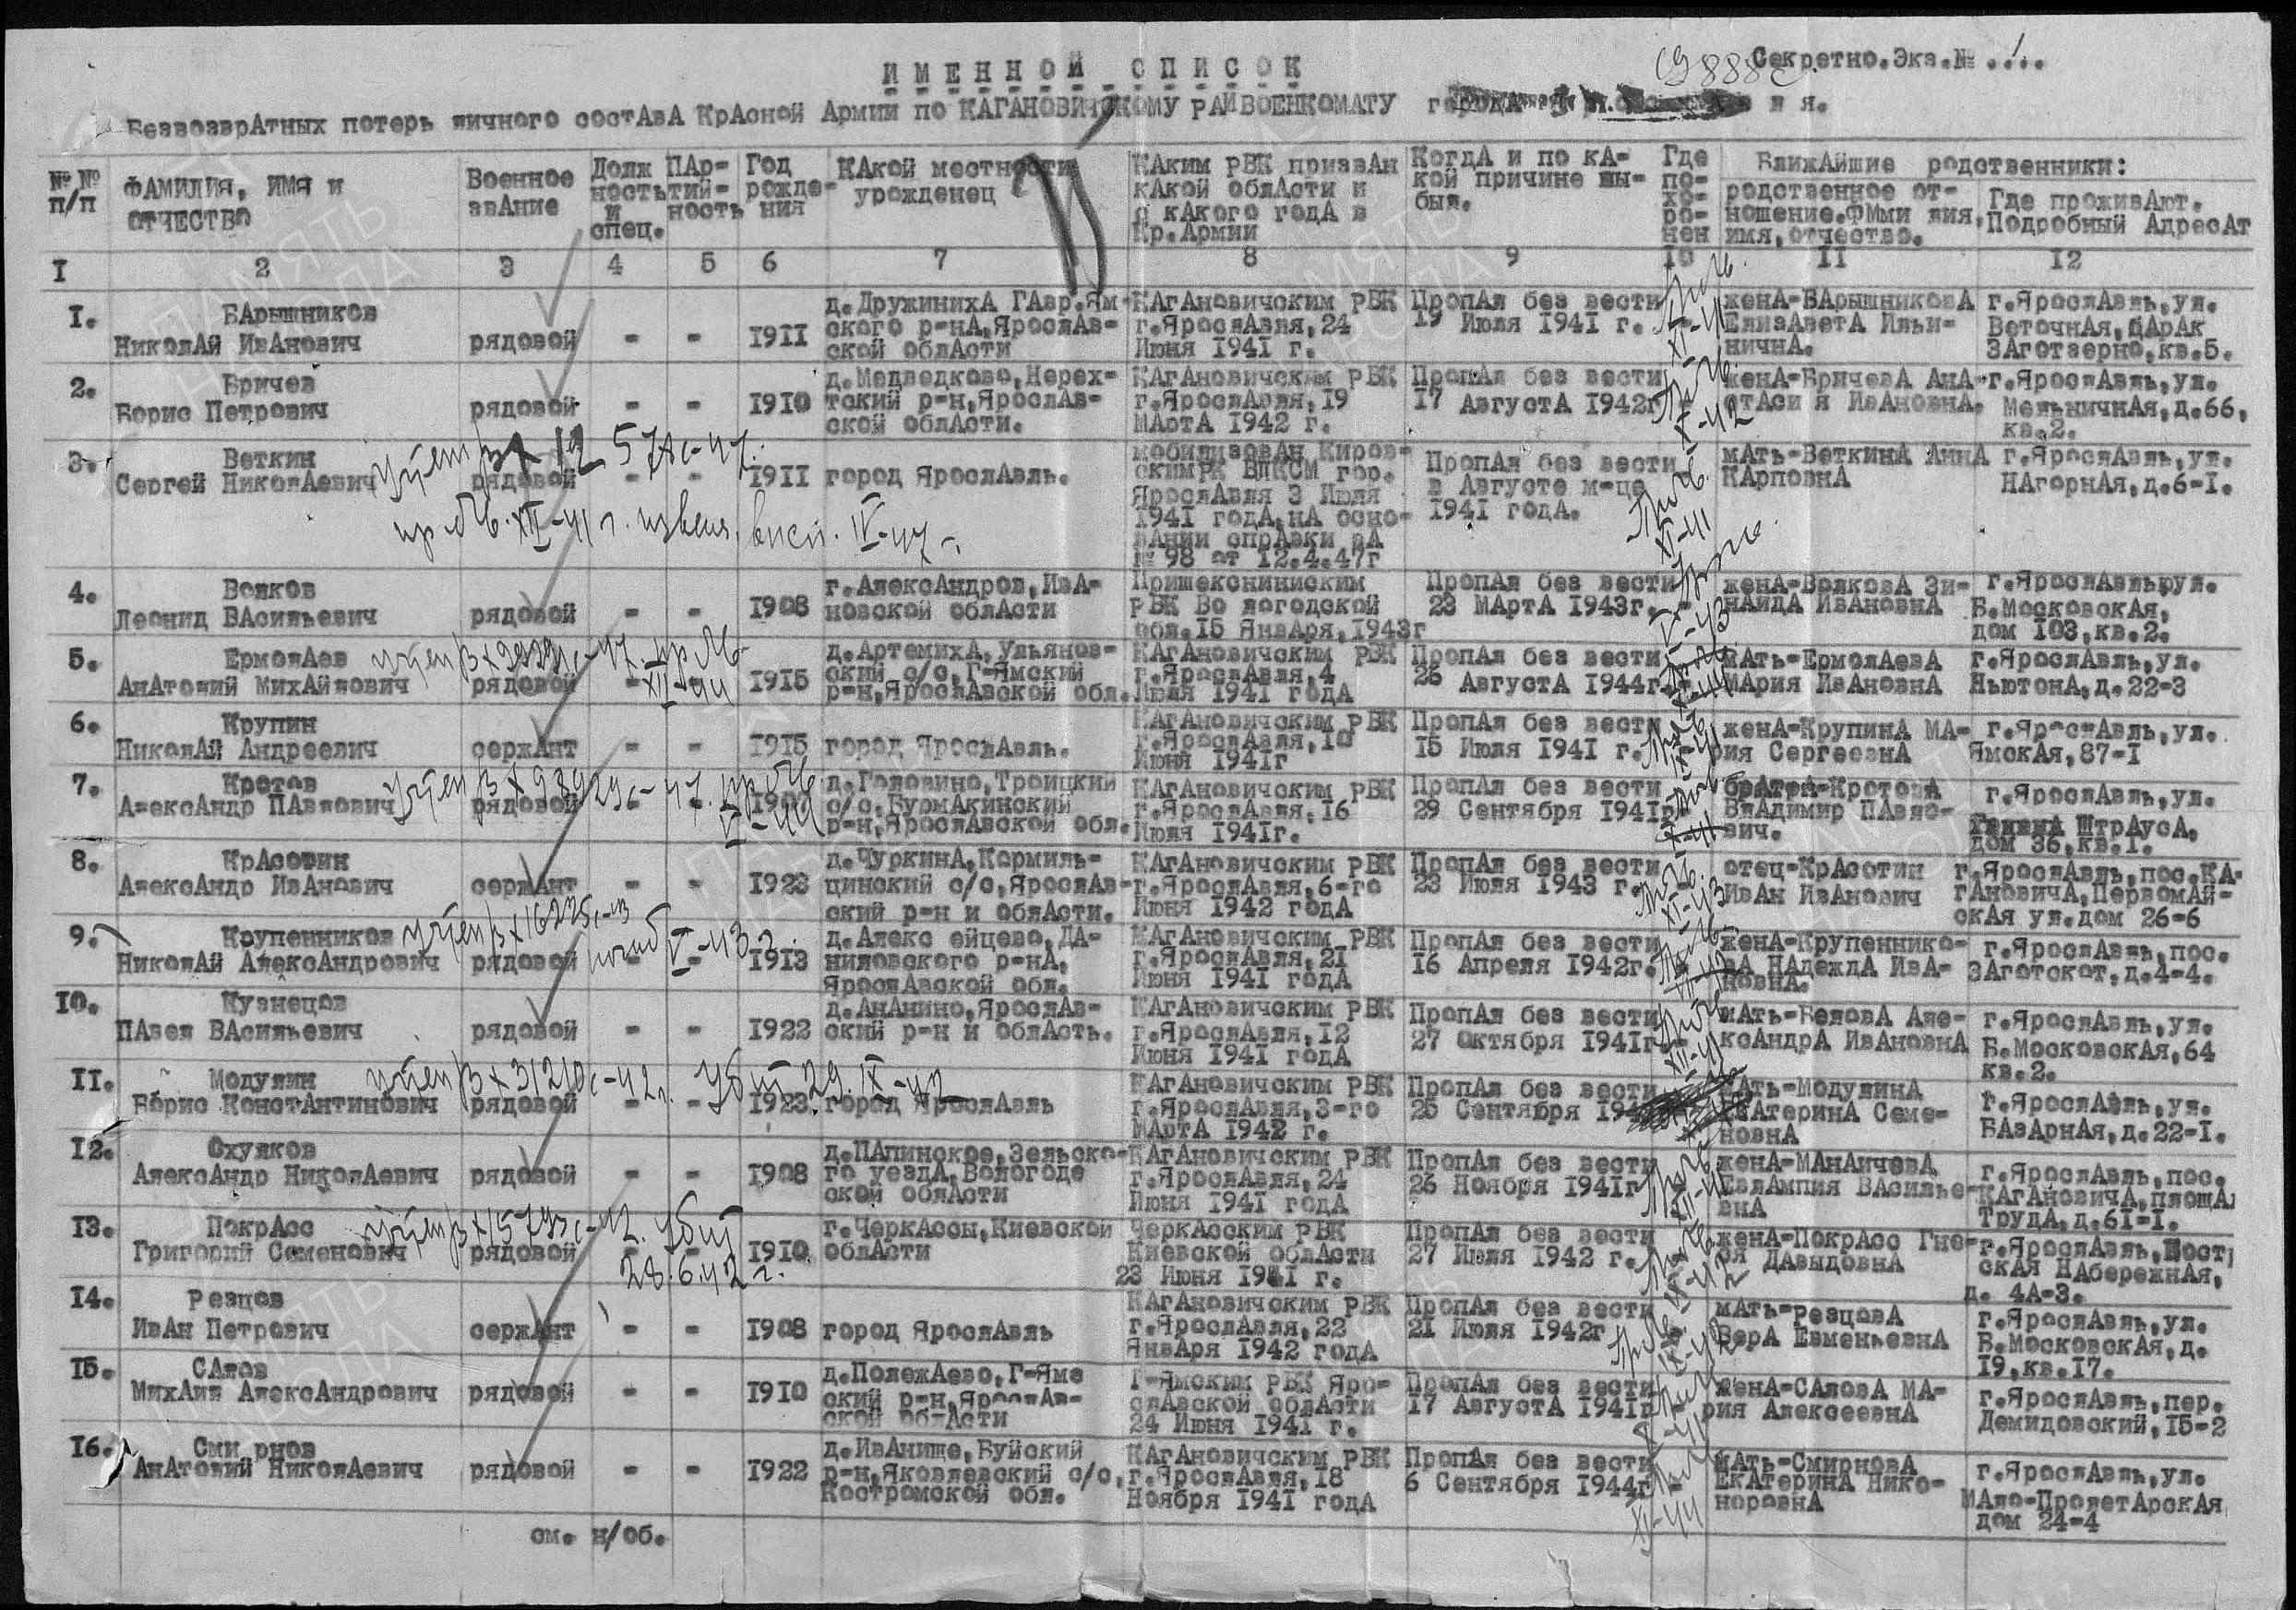 Секретно. Экз. № .1..
ИМЕННОЙ СПИСОК
Безвозвратных потерь личного состава Красной Армии по КАГАНОВИЧСКОМУ РАЙВОЕНКОМАТУ города
№№ п/п
ФАМИЛИЯ, ИМЯ и ОТЧЕСТВО
Военное звание
Долж ность и спец.
Пар- тий- ность
Год рожде- ния
Какой местности урожденец
Каким РВК призван какой области и с какого года в Кр.Армии
Когда и по ка- кой причине вы- был.
Где по- хо- ро- нен
Ближайшие родственники:
родственное от- ношение.ФМми лия, имя, отчество.
Где проживают. Подробный Адресат
I 2 3 4 5 6 7 8 9 10 II 12
I. Барышников
Николай Иванович
рядовой - - 1911
д.Дружиниха Гавр.Ям-
ского р-на, Ярослав-
ской области
Кагановичским РВК
г.Ярославля, 24
Июня 1941 г.
Пропал без вести
19 Июля 1941 г.
жена-Барышникова
Елизавета Ильи-
нична.
г.Ярославль, ул.
Веточная, барак
Заготзерно, кв.5.
2. Бричев
Борис Петрович
рядовой - - 1910
д.Медведково, Нерех-
тский р-н, Ярослав-
ской области.
Кагановичским РВК
г.Ярославля, 19
Марта 1942 г.
Пропал без вести
17 Августа 1942г
жена-Бричева Ана-
стаси я Ивановна.
г.Ярославль, ул.
Мельничная, д.66,
кв.2.
3. Веткин
Сергей Николаевич
рядовой - - 1911
город Ярославль.
мобилизован Киров-
скимРК ВЛКСМ гор.
Ярославля 3 Июля
1941 года, на осно-
вании справки за
№ 98 от 12.4.47г
Пропал без вести
в Августе м-це
1941 года.
мать-Веткина Анна
Карповна
г.Ярославль, ул.
Нагорная, д.6-I.
учтен
4. Волков
Леонид Васильевич
рядовой - - 1908
г.Александров, Ива-
новской области
Пришекснинским
РВК Во логодской
обл. 15 Января, 1943г
Пропал без вести
23 Марта 1943г.
жена-Волкова Зи-
наида Ивановна
г.Ярославль, ул.
Б.Московская,
дом 103, кв.2.
5. Ермолаев
Анатолий Михайлович
рядовой - - 1915
д.Артемиха, Ульянов-
ский с/с, Г-Ямский
р-н, Ярославской обл.
Кагановичским РВК
г.Ярославля, 4
Июля 1941 года
Пропал без вести
26 Августа 1944г.
мать-Ермолаева
Мария Ивановна
г.Ярославль, ул.
Ньютона, д.22-3
6. Крупин
Николай Андреевич
сержант - - 1915
город Ярославль.
Кагановичским РВК
г.Ярославля, 10
Июня 1941г
Пропал без вести
15 Июля 1941 г.
жена-Крупина Ма-
рия Сергеевна
г.Ярославль, ул.
Ямская, 87-I
7. Кротов
Александр Павлович
рядовой
д.Головино, Троицкий
с/с, Бурмакинский
р-н, Ярославской обл.
Кагановичским РВК
г.Ярославля, 16
Июля 1941г.
Пропал без вести
29 Сентября 1941г
Владимир Павло-
вич.
г.Ярославль, ул.
Штрауса,
дом 36, кв.I.
8. Красотин
Александр Иванович
сержант - - 1923
д.Чуркина, Кормиль-
цинский с/с, Ярослав-
ский р-н и области.
Кагановичским РВК
г.Ярославля, 6-го
Июня 1942 года
Пропал без вести
23 Июля 1943 г.
отец-Красотин
Иван Иванович
г.Ярославль, пос.Ка-
гановича, Первомай-
ская ул. дом 26-6
9. Крупенников
Николай Александрович
рядовой - - 1913
д.Алекс ейцево, Да-
ниловского р-на,
Ярославской обл.
Кагановичским РВК
г.Ярославля, 21
Июня 1941 года
Пропал без вести
16 Апреля 1942г.
жена-Крупеннико-
ва Надежда Ива-
новна.
г.Ярославль, пос.
Заготскот, д.4-4.
10. Кузнецов
Павел Васильевич
рядовой - - 1922
д.Ананино, Ярослав-
ский р-н и область.
Кагановичским РВК
г.Ярославля, 12
Июня 1941 года
Пропал без вести
27 октября 1941г.
мать-Белова Але-
ксандра Ивановна
г.Ярославль, ул.
Б.Московская, 64
кв.2.
II. Модулин
Борис Константинович
рядовой - - 1923
город Ярославль
Кагановичским РВК
г.Ярославля, 3-го
Марта 1942 г.
Пропал без вести
25 Сентября
мать-Модулина
Екатерина Семе-
новна
г.Ярославль, ул.
Базарная, д.22-I.
убит 29.IX-42
12. Охулков
Александр Николаевич
рядовой - - 1908
д.Папинское, Зельско-
го уезда, Вологодс
ской области
Кагановичским РВК
г.Ярославля, 24
Июня 1941 года
Пропал без вести
26 Ноября 1941г
жена-Манаичева
Евлампия Василье-
вна
г.Ярославль, пос.
Кагановича, площад
Труда, д.61-I.
13. Покрасс
Григорий Семенович
рядовой - - 1910
г.Черкассы, Киевской
области
Черкасским РВК
Киевской области
23 Июня 1941 г.
Пропал без вести
27 Июля 1942 г.
жена-Покрасс Гне-
ся Давыдовна
г.Ярославль,
ская Набережная,
д. 4А-3.
убит
28.6.42 г.
14. Резцов
Иван Петрович
сержант - - 1908
город Ярославль
Кагановичским РВК
г.Ярославля, 22
Января 1942 года
Пропал без вести
21 Июля 1942г
мать-Резцова
Вера Евменьевна
г.Ярославль, ул.
Б.Московская, д.
19, кв.17.
15. Салов
Михаил Александрович
рядовой - - 1910
д.Полежаево, Г-Ямс
ский р-н, Ярослав-
ской области
Г-Ямским РВК Яро-
славской области
24 Июня 1941 г.
Пропал без вести
17 Августа 1941г
жена-Салова Ма-
рия Алексеевна
г.Ярославль, пер.
Демидовский, 15-2
16. Сми рнов
Анатолий Николаевич
рядовой - - 1922
д.Иванище, Буйский
р-н, Яковлевский с/с,
Костромской обл.
Кагановичским РВК
г.Ярославля, 18
Ноября 1941 года
Пропал без вести
6 Сентября 1944г
мать-Смирнова
Екатерина Нико-
норовна
г.Ярославль, ул.
Мало-Пролетарская
дом 24-4
см. н/об.